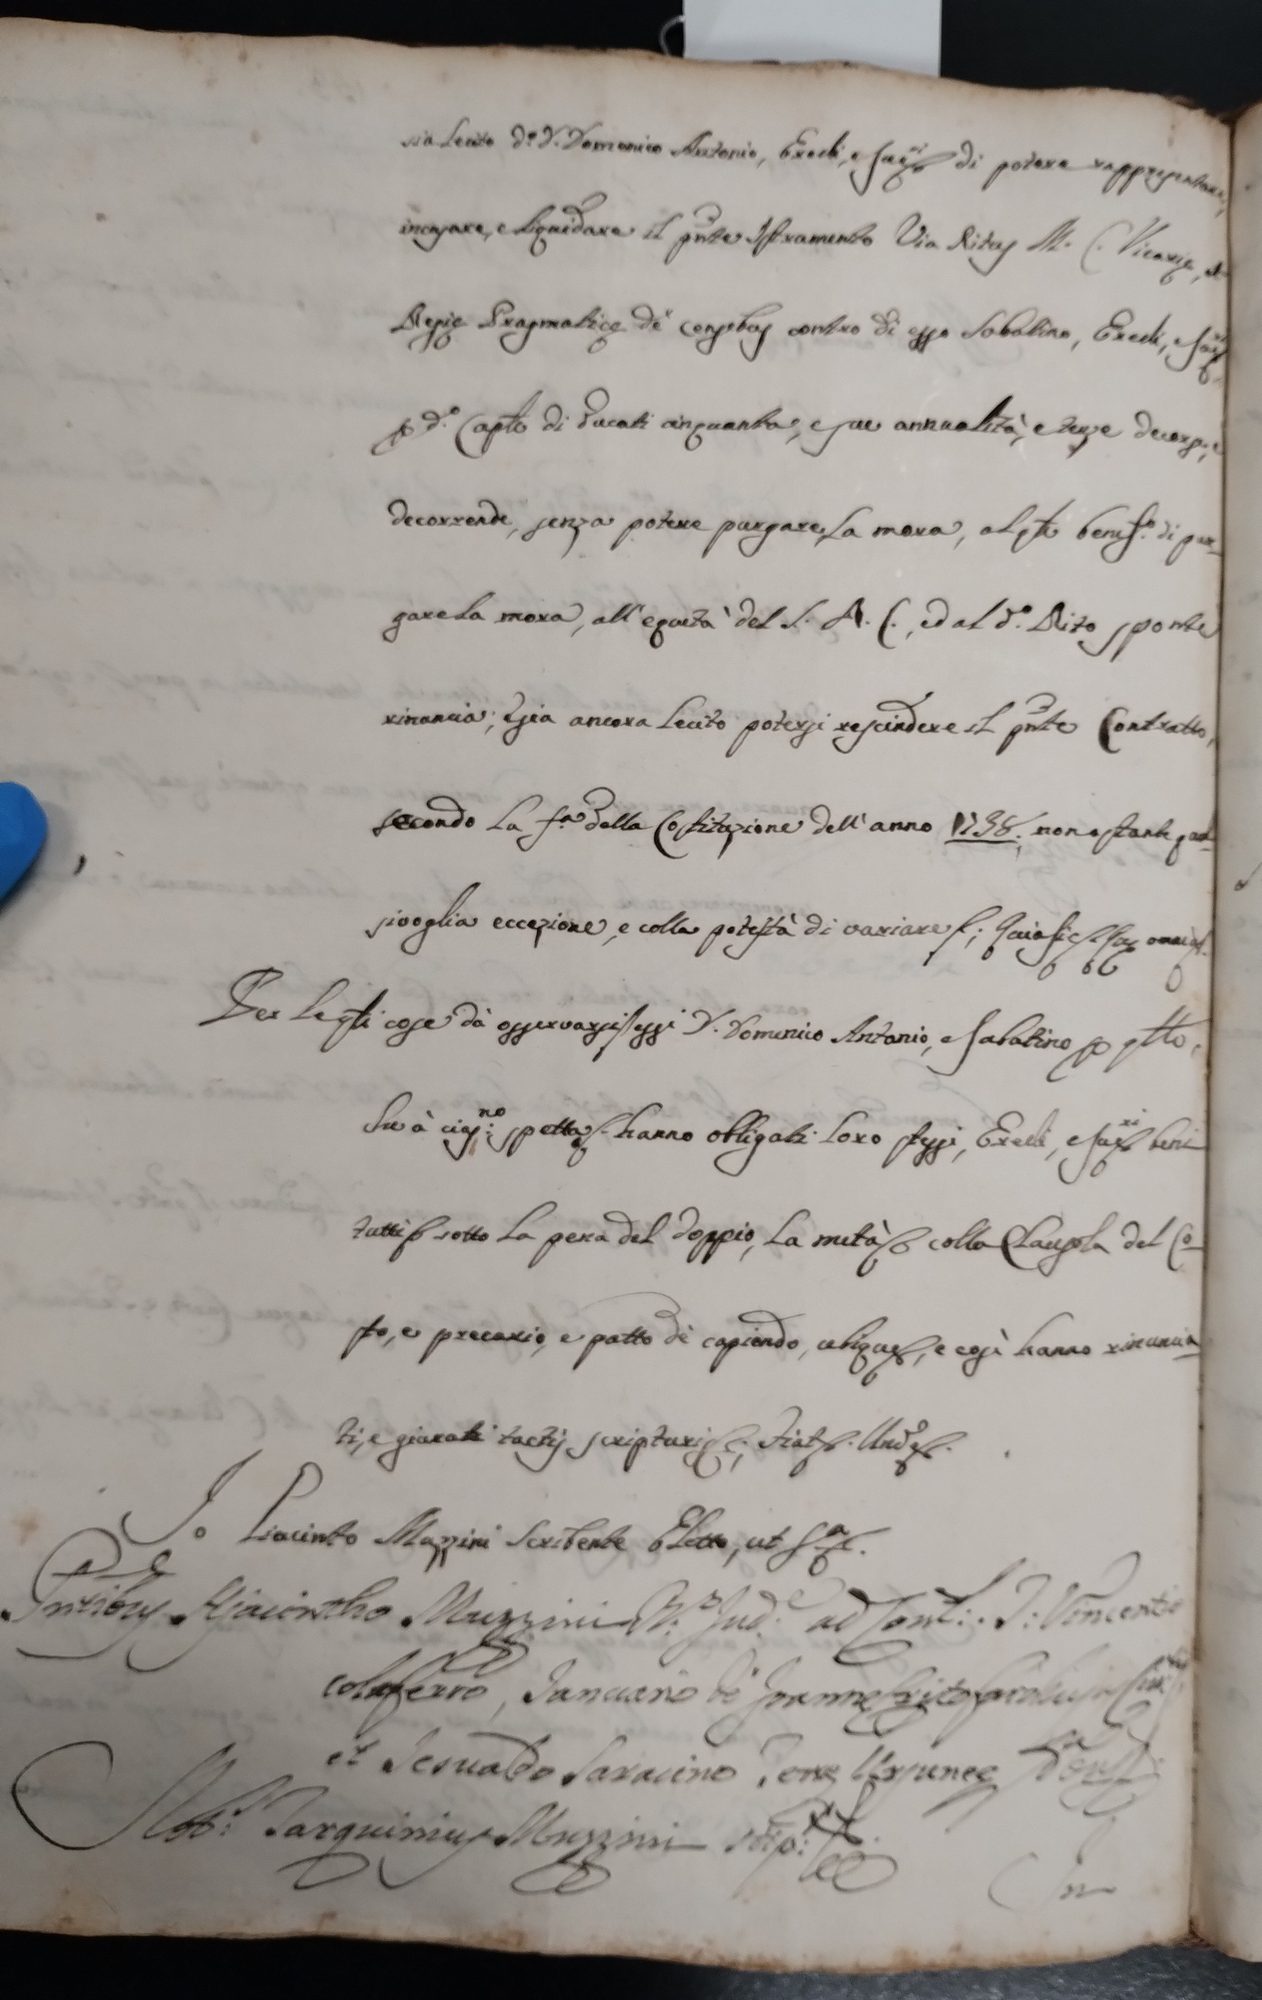 sia lecito d.º D. Domenico Antonio, Eredi, e suc.ri di potere rappresentare,
incusare, e liquidare il pnte Istramento Via Ritus M. C. Vicarię, et
Regię Pragmaticę de censibus contro di esso Sabatino, Eredi, e suc.ri
p d.º Caple di ducati cinquanta, e sue annualità, e terze decorse, e
decorrende, senza potere purgare la mora, al qle benef.º di pur-
gare la mora, all'equità del S. R. C., ed al d.º Rito sponte
rinuncia; E sia ancora lecito potersi rescindere il pnte Contratto,
secondo la f.a della Costituzione dell'anno 1738. non ostante qual
sivoglia eccezione, e colla potestà di variare
Per le qli cose dà osservarsi essi D. Domenico Antonio, e Sabatino p qtto,
che à cias.no spetta hanno obligati loro stessi, Eredi, e suc.ri beni
tutti sotto la pena del doppio, la metà colla Clausola del Co-
sto, e precario, e patto de capiendo, ubique, e così hanno rinuncia
ti, e giurati tactis scripturis; Fiat. Unde.
Io Giacinto Muzzini scribente Eletto, ut s.a
Pntibus Hjacintho Muzzini R.º Jud.e ad Cont: D: Vincentio
Colaferro, Januario de Joanne
et Jesualdo Saracino
Not: Tarquinius Muzzini stip:
In